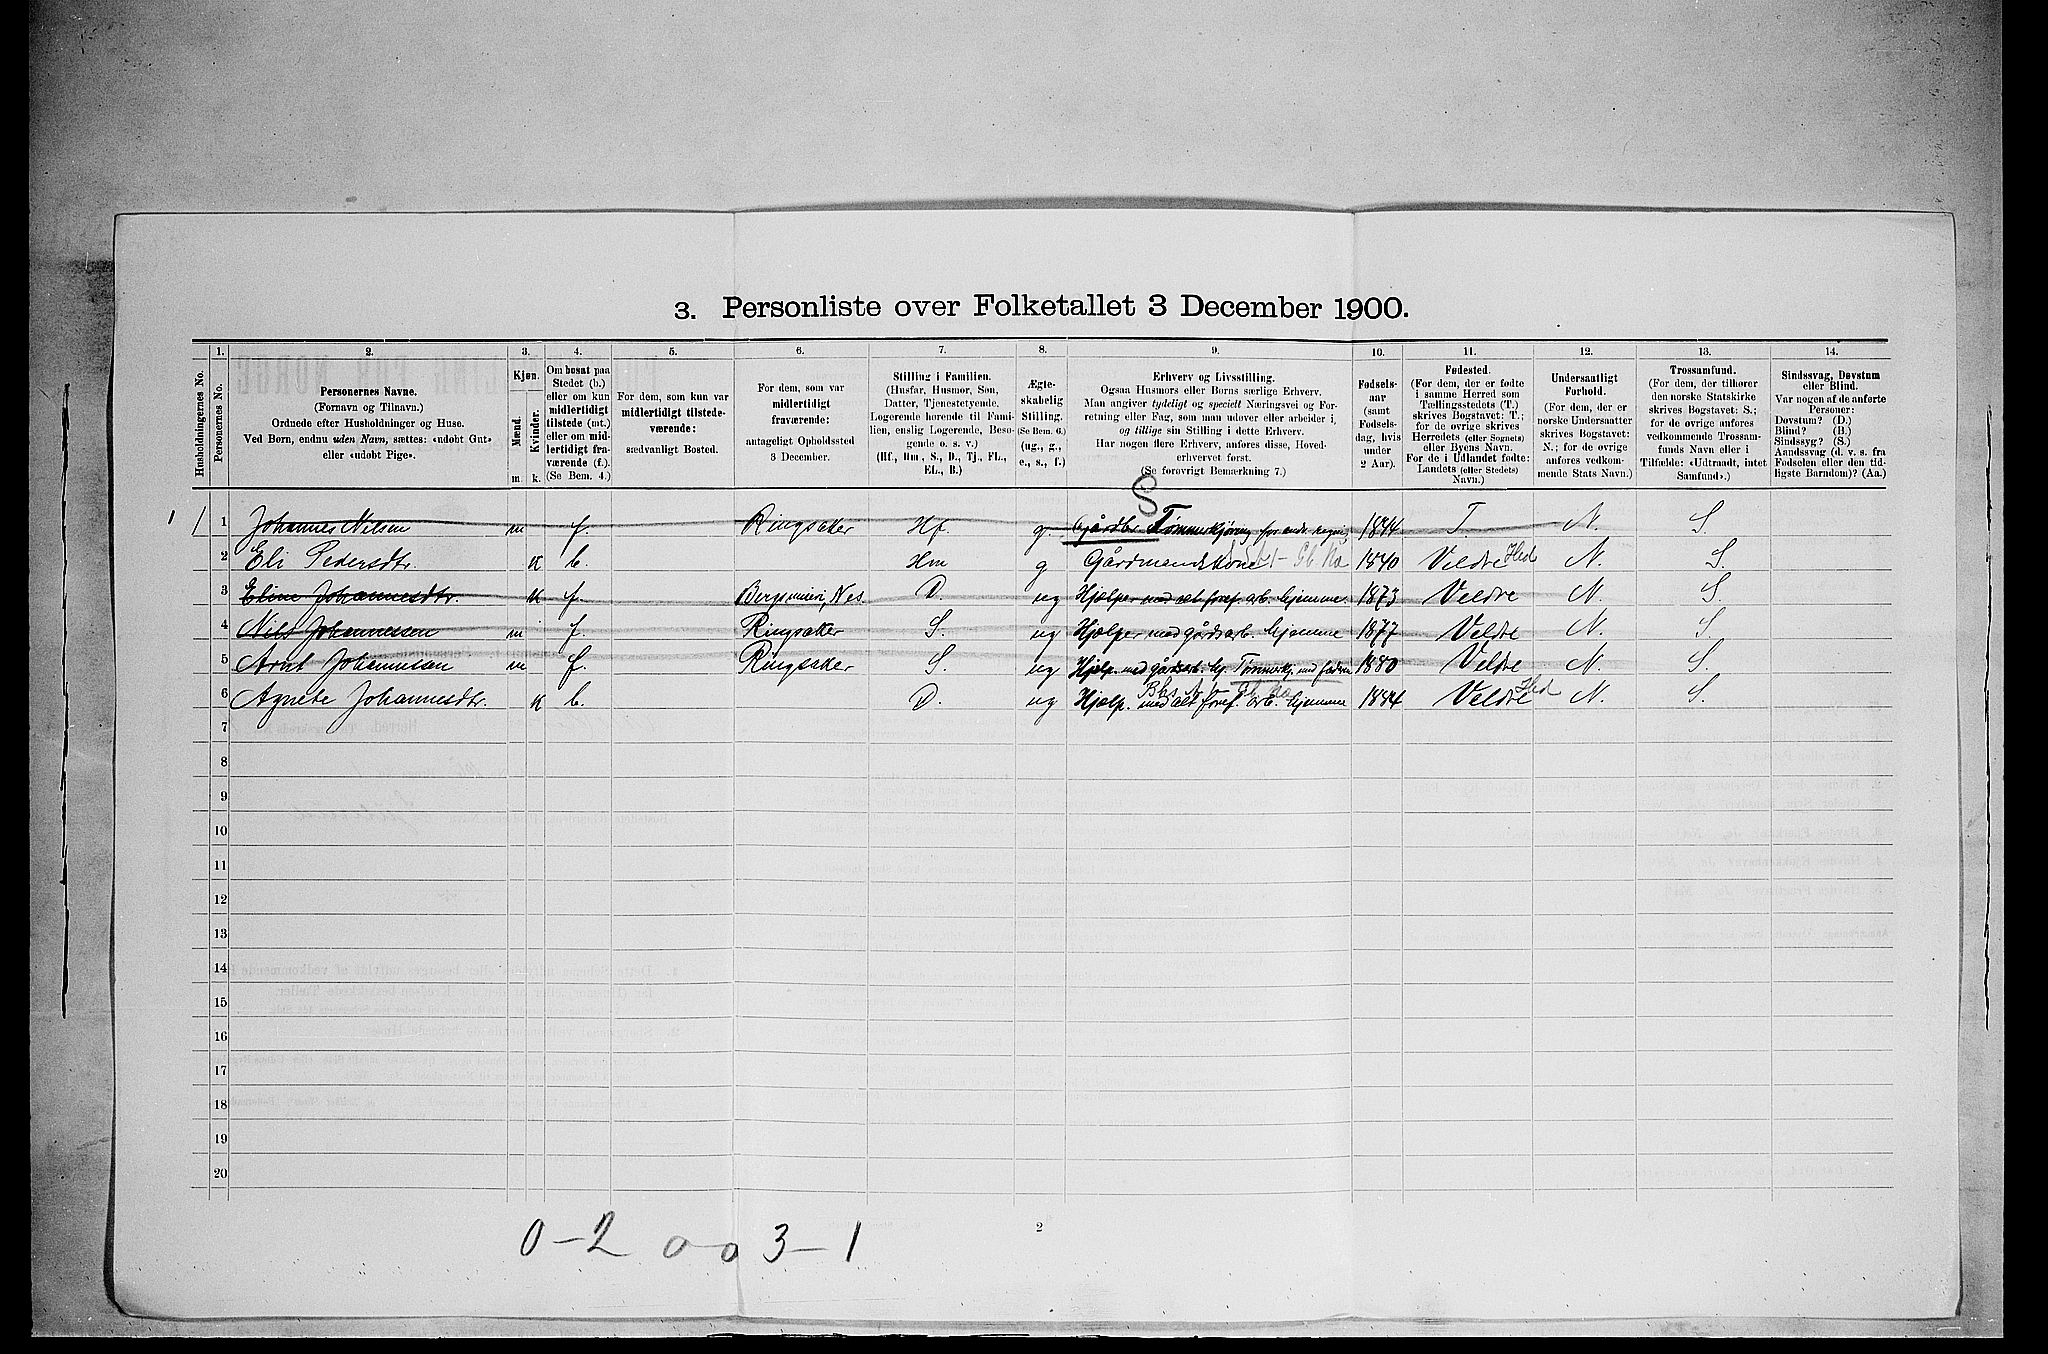 3. Personliste over Folketallet 3 December 1900.
1. 2. 3. 4. 5. 6. 7. 8. 9. 10. 11. 12. 13. 14.
Husholdningernes No.
Personernes No.
Personernes Navne.
(Fornavn og Tilnavn.)
Ordnede efter Husholdninger og Huse.
Ved Børn, endnu uden Navn, sættes: «udøbt Gut»
eller «udøbt Pige».
Kjøn.
Mænd.
Kvinder.
m. k.
Om bosat paa
Stedet (b.)
eller om kun
midlertidigt
tilstede (mt.)
eller om mid-
lertidigt fra-
værende (f.).
(Se Bem. 4.)
For dem, som kun var
midlertidigt tilstede-
værende:
sædvanligt Bosted.
For dem, som var
midlertidigt
fraværende:
antageligt Opholdssted
3 December.
Stilling i Familien.
(Husfar, Husmor, Søn,
Datter, Tjenestetyende,
Logerende hørende til Fami-
lien, enslig Logerende, Besø-
gende o. s. v.)
(Hf., Hm., S., D., Tj., FL.,
EL., B.)
Ægte-
skabelig
Stilling.
(Se Bem. 6.)
(ug., g.,
e., s., f.)
Erhverv og Livsstilling.
Ogsaa Husmors eller Børns særlige Erhverv.
Man angiver tydeligt og specielt Næringsvei og For-
retning eller Fag, som man udøver eller arbeider i,
og tillige sin Stilling i dette Erhverv.
Har nogen flere Erhverv, anføres disse, Hoved-
erhvervet først.
(Se forøvrigt Bemærkning 7.)
Fødsels-
aar
(samt
Fødsels-
dag, hvis
under
2 Aar).
Fødested.
(For dem, der er fødte
i samme Herred som
Tællingsstedets (T.)
skrives Bogstavet: T.;
for de øvrige skrives
Herredets (eller Sognets)
eller Byens Navn.
For de i Udlandet fødte:
Landets (eller Stedets)
Navn.)
Undersaatligt
Forhold.
(For dem, der er
norske Undersaatter
skrives Bogstavet:
N.; for de øvrige
anføres vedkom-
mende Stats Navn.)
Trossamfund.
(For dem, der tilhører
den norske Statskirke
skrives Bogstavet: S.;
for de øvrige anføres
vedkommende Trossam-
funds Navn eller i
Tilfælde: «Udtraadt, intet
Samfund».)
Sindssvag, Døvstum
eller Blind.
Var nogen af de anførte
Personer:
Døvstum? (D.)
Blind? (B.)
Sindssyg? (S.)
Aandssvag (d. v. s. fra
Fødselen eller den tid-
ligste Barndom)? (Aa.)
S
1 1 Johannes Nilsen m f. Ringsaker Hf. g Gårdbr. Tømmerkjøring for andr. regning 1844 T. N. S.
2 Eli Pedersdtr. K b. Hm g Gårdmandskone 1840 Veldre Hed N. S.
3 Eline Johannesdtr. K f. Nes D. ug Hjælper med alt foref. arb. hjemme. 1873 Veldre N. S
4 Nils Johannessen m f. Ringsaker S. ug Hjælper med gårdsarb. hjemme 1877 Veldre N. S.
5 Arnt Johannessen m f. Ringsaker S. ug Hjælp. med gårdsarb. hj. Tømmerkj. med faderen 1880 Veldre N. S.
6 Agnete Johannesdtr. K b. D. ug Hjælp. med alt foref. arb. hjemme 1884 Veldre Hed N. S.
7
8
9
10
11
12
13
14
15
16
17
18
19
20
0-2 0-0 3-1
2